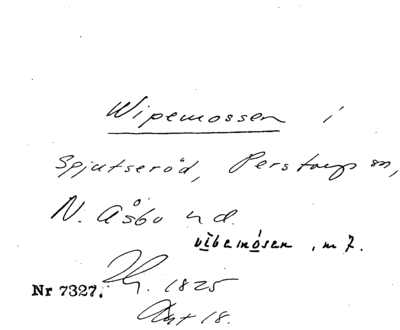 Wipemossen i
Spjutseröd, Perstorps sn,
N. Åsbo hd.
vibemósen, m 7.
1825
Nr 7327.
Akt 18.